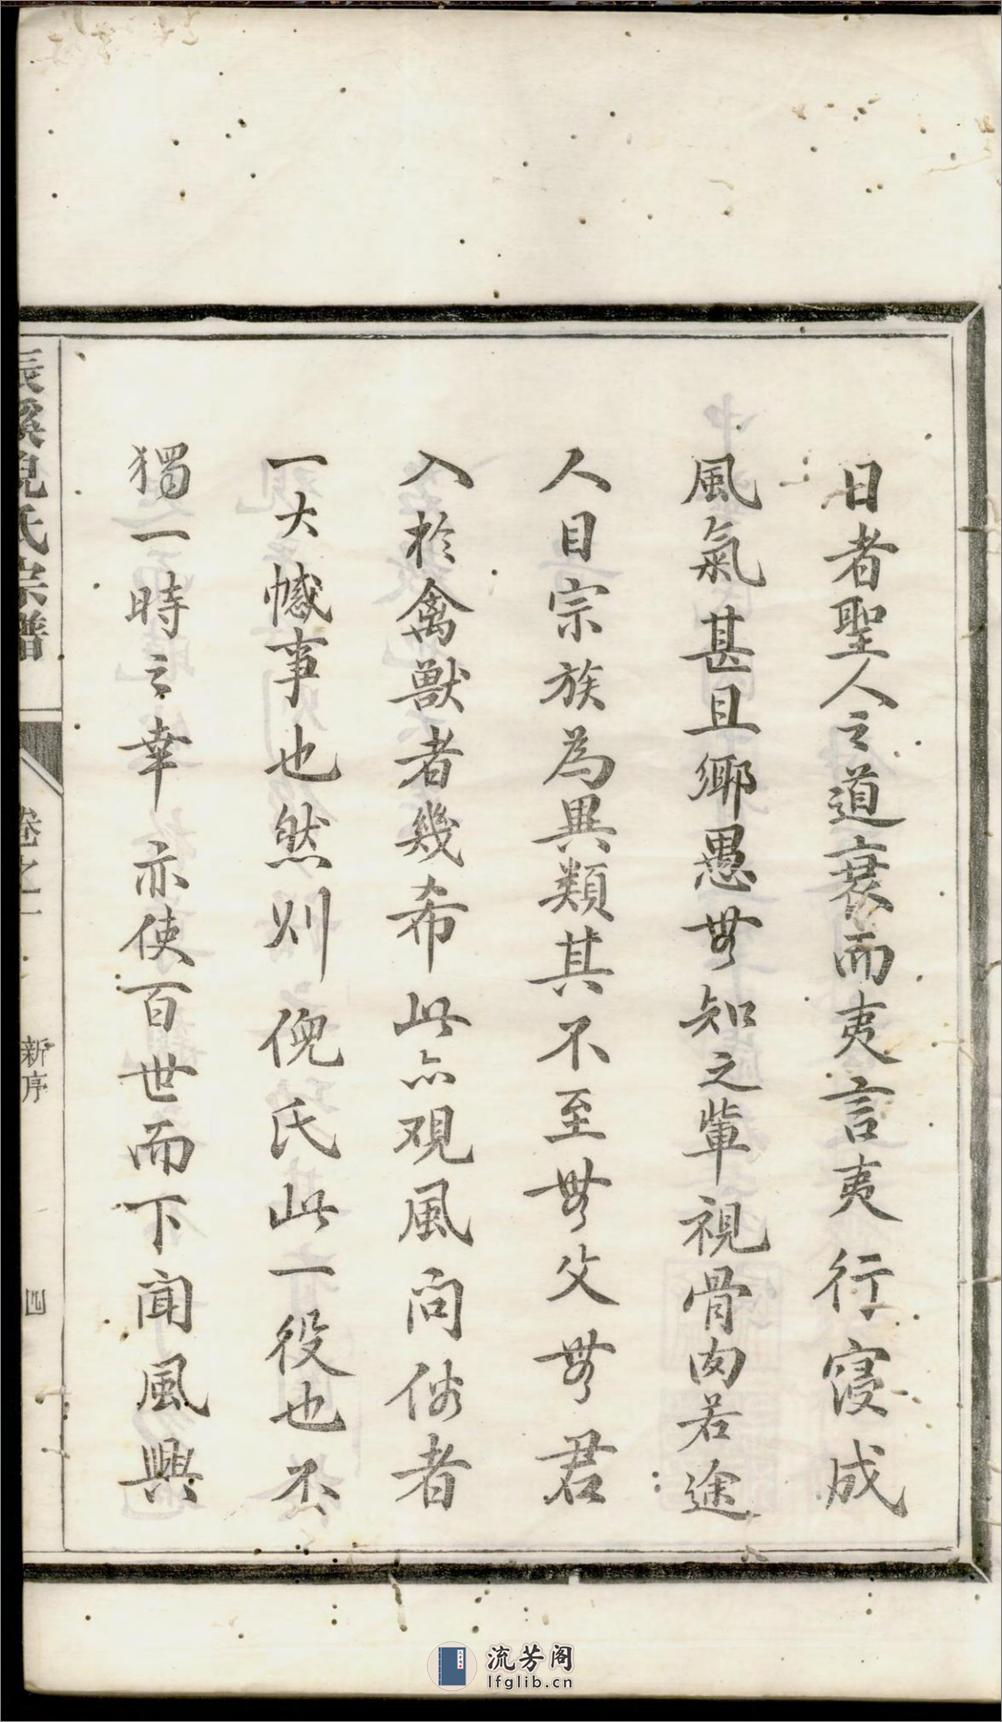 日者聖人之道衰而夷言夷行寖成
風氣甚且鄉愚無知之輩視骨肉若途
人目宗族為異類其不至無父無君
入於禽獸者幾希此亦观風问俗者
一大憾事也然则倪氏此一役也不
獨一時之幸亦使百世而下闻風興
辰溪倪氏宗譜
卷之一
新序
四
流芳阁
lfglib.cn